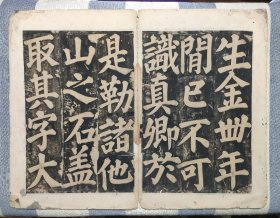 生金卌年
間已不可
識真卿於
是勒諸他
山之石盖
取其字大